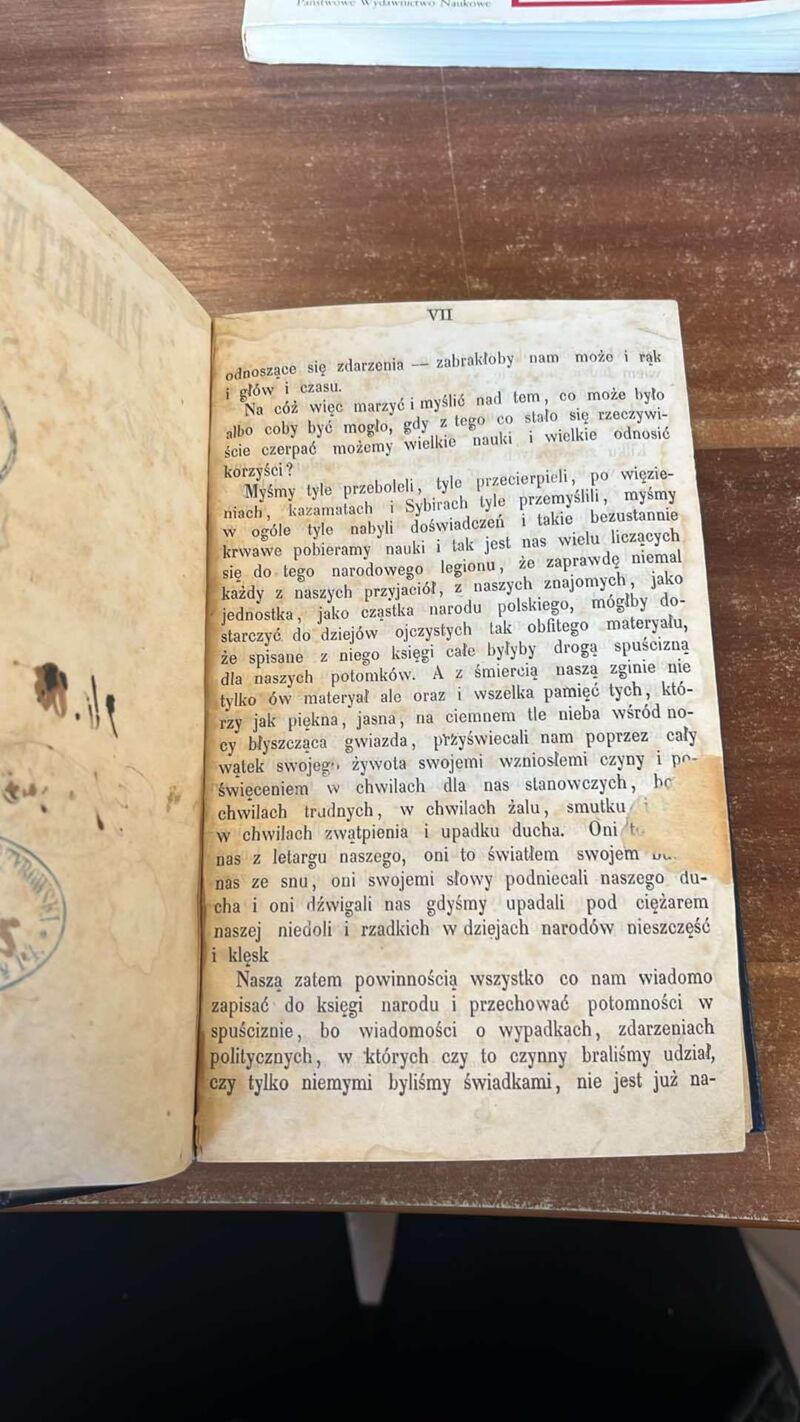 Państwowe Wydawnictwo Naukowe
VII
odnoszące się zdarzenia — zabrakłoby nam może i rąk
i głów i czasu.
Na cóż więc marzyć i myślić nad tem, co może było
albo coby być mogło, gdy z tego co stało się rzeczywi-
ście czerpać możemy wielkie nauki i wielkie odnosić
korzyści?
Myśmy tyle przeboleli, tyle przecierpieli, po więzie-
niach, kazamatach i Sybirach tyle przemyślili, myśmy
w ogóle tyle nabyli doświadczeń i takie bezustannie
krwawe pobieramy nauki i tak jest nas wielu liczących
się do tego narodowego legionu, że zaprawdę niemal
każdy z naszych przyjaciół, z naszych znajomych, jako
jednostka, jako cząstka narodu polskiego, mógłby do-
starczyć do dziejów ojczystych tak obfitego materyału,
że spisane z niego księgi całe byłyby drogą spuścizną
dla naszych potomków. A z śmiercią naszą zginie nie
tylko ów materyał ale oraz i wszelka pamięć tych, któ-
rzy jak piękna, jasna, na ciemnem tle nieba wśród no-
cy błyszcząca gwiazda, przyświecali nam poprzez cały
wątek swojego żywota swojemi wzniosłemi czyny i po-
święceniem w chwilach dla nas stanowczych,
chwilach trudnych, w chwilach żalu, smutku
w chwilach zwątpienia i upadku ducha. Oni
nas z letargu naszego, oni to światłem swojem
nas ze snu, oni swojemi słowy podniecali naszego du-
cha i oni dźwigali nas gdyśmy upadali pod ciężarem
naszej niedoli i rzadkich w dziejach narodów nieszczęść
i klęsk
Naszą zatem powinnością wszystko co nam wiadomo
zapisać do księgi narodu i przechować potomności w
spuściznie, bo wiadomości o wypadkach, zdarzeniach
politycznych, w których czy to czynny braliśmy udział,
czy tylko niemymi byliśmy świadkami, nie jest już na-